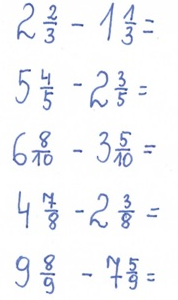 2 2/3 - 1 1/3 =
5 4/5 - 2 3/5 =
6 8/10 - 3 5/10 =
4 7/8 - 2 3/8 =
9 8/9 - 7 5/9 =